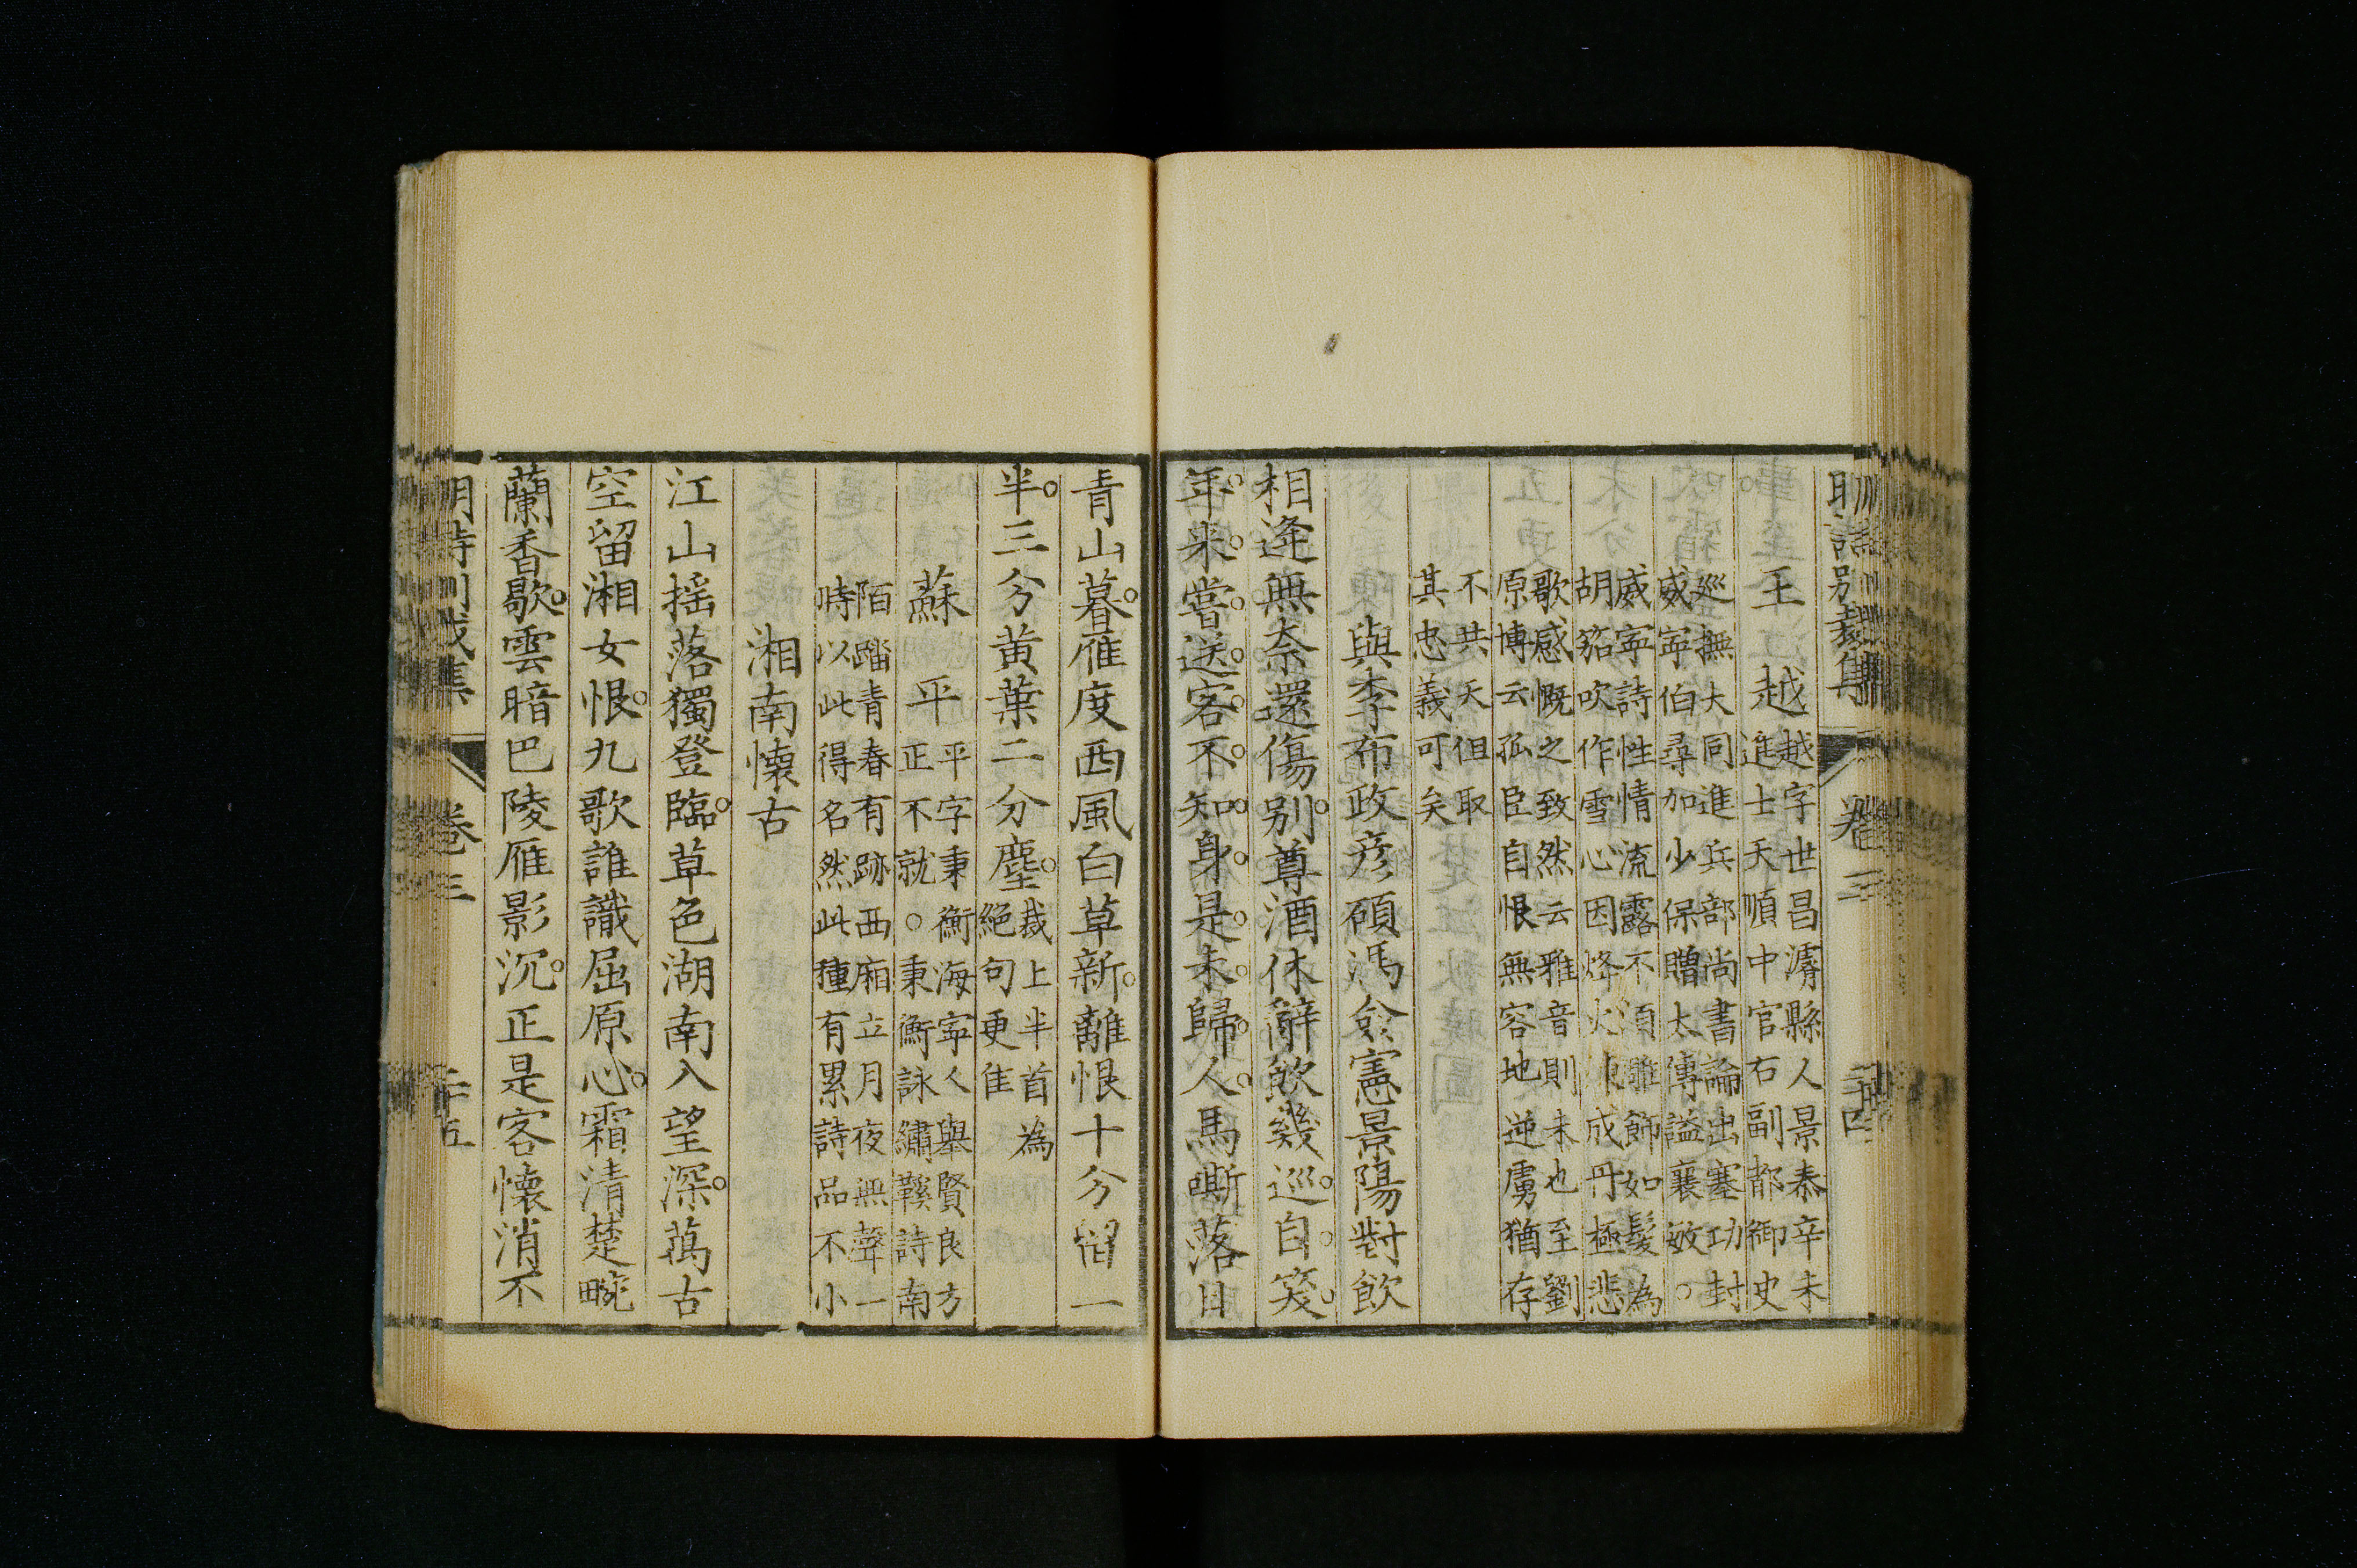 明詩別裁集 卷三 二十四
王越 越字世昌濬縣人景泰辛未
進士天順中官右副都御史
巡撫大同進兵部尚書論出塞功封
威寧伯尋加少保贈太傅謚襄敏。
威寧詩性情流露不須雕飾如髮為
胡笳吹作雪心因烽火煉成丹極悲
歌感慨之致然云雅音則未也至劉
原博云孤臣自恨無容地逆虜猶存
不共天但取
其忠義可矣
與李布政彥碩馮僉憲景陽對飲
相逢無奈還傷別。尊酒休辭飲幾巡。自。笑。
年。來。嘗。送。客。不。知。身。是。未。歸。人。馬嘶落日
青山暮。雁度西風白草新。離恨十分留一
半。三分黃葉二分塵。裁上半首為
絕句更佳
蘇平 平字秉衡海寧人舉賢良方
正不就。秉衡詠繡鞵詩南
陌踏青春有跡西廂立月夜無聲一
時以此得名然此種有累詩品不小
湘南懷古
江山搖落獨登臨。草色湖南入望深。萬古
空留湘女恨。九歌誰識屈原心。霜清楚畹
蘭香歇。雲暗巴陵雁影沉。正是客懷消不
明詩別裁集 卷三 二十五